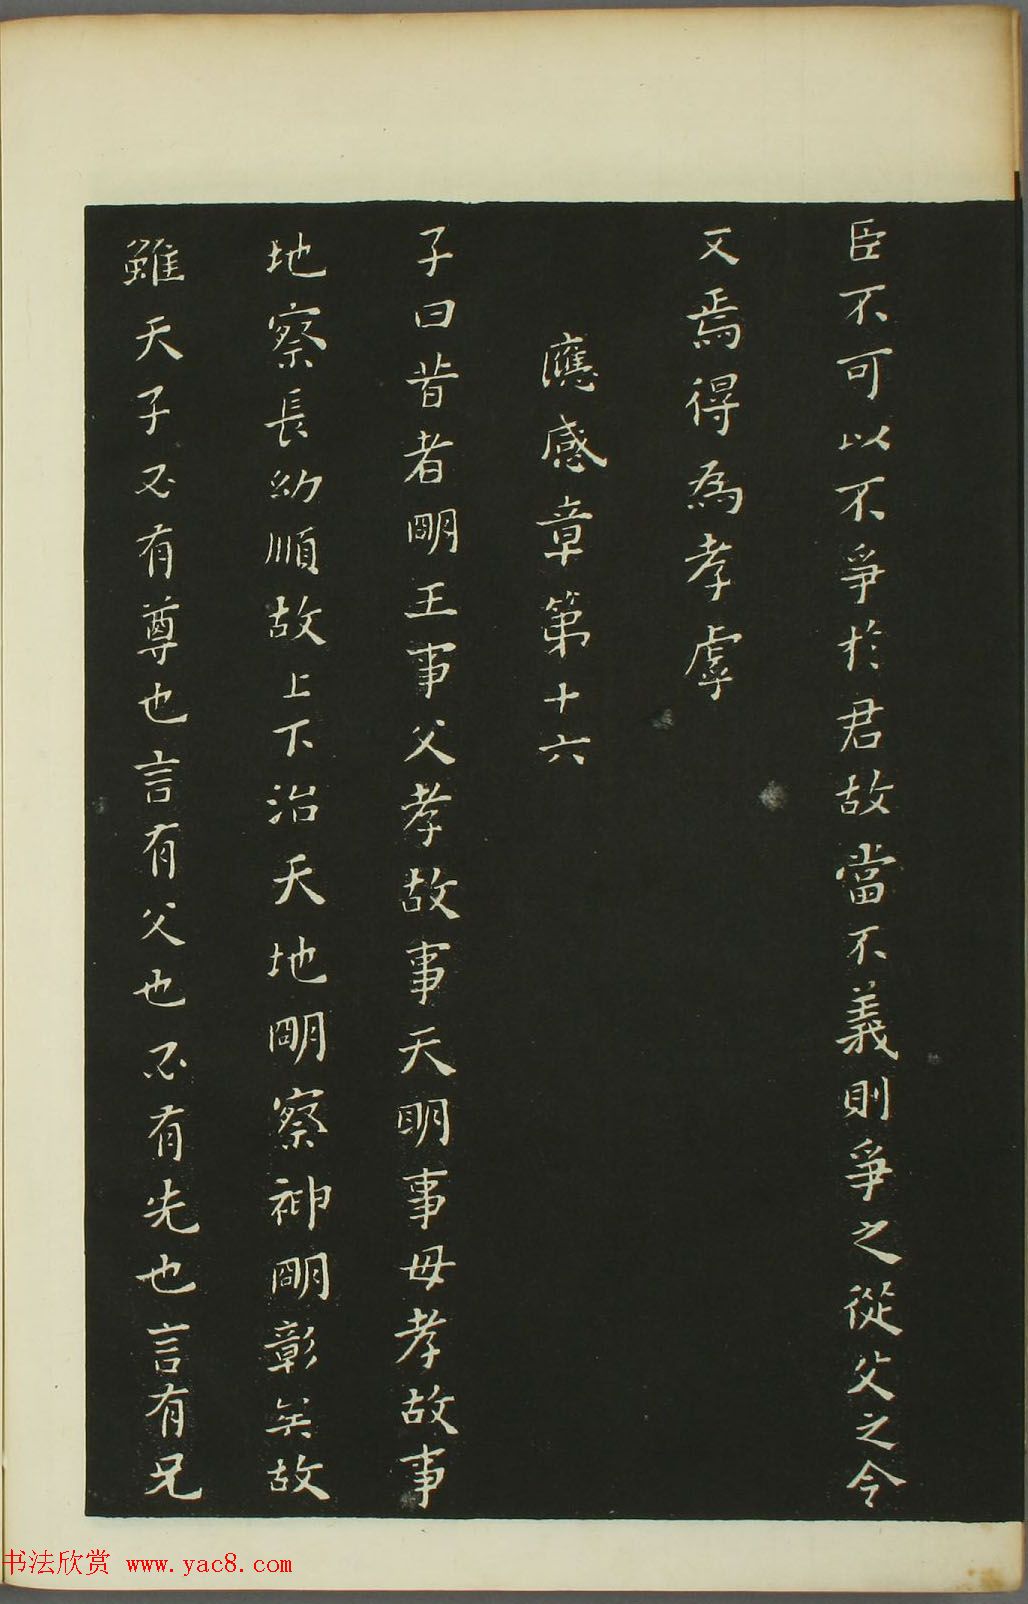 臣不可以不爭於君故當不義則爭之從父之令
又焉得為孝虖
應感章第十六
子曰昔者朙王事父孝故事天明事母孝故事
地察長幼順故上下治天地朙察神朙彰矣故
雖天子必有尊也言有父也必有先也言有兄
书法欣赏 www.yac8.com